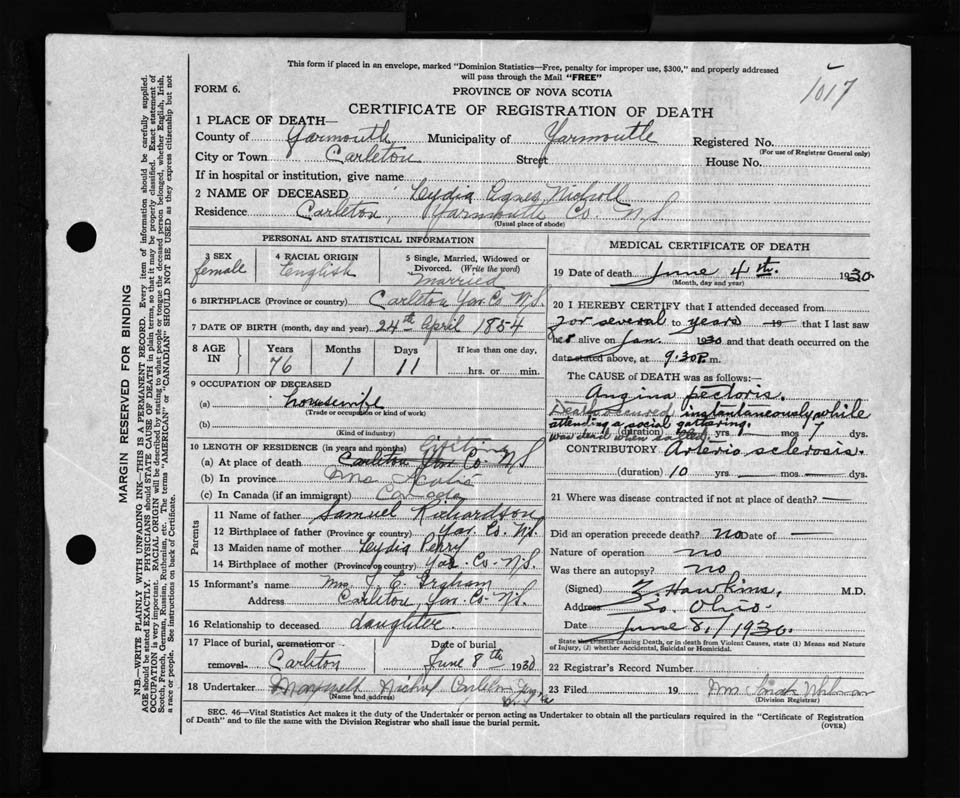 This form if placed in an envelope, marked "Dominion Statistics—Free, penalty for improper use, $300," and properly addressed
will pass through the Mail "FREE"
1017
FORM 6.
PROVINCE OF NOVA SCOTIA
CERTIFICATE OF REGISTRATION OF DEATH
1 PLACE OF DEATH—
County of Yarmouth Municipality of Yarmouth Registered No.
(For use of Registrar General only)
City or Town Carleton Street House No.
If in hospital or institution, give name
2 NAME OF DECEASED Lydia Agnes Nicholl
Residence Carleton, Yarmouth Co. N.S.
(Usual place of abode)
PERSONAL AND STATISTICAL INFORMATION
3 SEX 4 RACIAL ORIGIN 5 Single, Married, Widowed or Divorced. (Write the word)
female English married
6 BIRTHPLACE (Province or country) Carleton Yar. Co N.S.
7 DATE OF BIRTH (month, day and year) 24th April 1854
8 AGE IN Years Months Days If less than one day,
76 1 11 hrs. or min.
9 OCCUPATION OF DECEASED
(a) housewife
(Trade or occupation or kind of work)
(b)
(Kind of industry)
10 LENGTH OF RESIDENCE (in years and months)
(a) At place of death Carleton Yar Co N S
(b) In province
(c) In Canada (if an immigrant) Canada
Parents
11 Name of father Samuel Richardson
12 Birthplace of father (Province or country) Yar. Co. N.S.
13 Maiden name of mother Lydia Perry
14 Birthplace of mother (Province or country) Yar. Co. N.S.
15 Informant's name Mrs. T. E. Graham
Address Carleton, Yar. Co. N.S.
16 Relationship to deceased daughter.
17 Place of burial, cremation or removal. Carleton Date of burial June 8th 1930
18 Undertaker Maxwell
(Name and address)
MEDICAL CERTIFICATE OF DEATH
19 Date of death June 4th. 1930
(Month, day and year)
20 I HEREBY CERTIFY that I attended deceased from
for several to years 19 that I last saw
her alive on Jan. 1930 and that death occurred on the
date stated above, at 9:30 P.m.
The CAUSE of DEATH was as follows:—
Angina pectoris.
Death occured instantaneously while
attending a social gathering.
was dead when called
(duration) yrs. mos 7 dys.
CONTRIBUTORY Arterio sclerosis.
(duration) 10 mos. dys.
21 Where was disease contracted if not at place of death? —
Did an operation precede death? no Date of —
Nature of operation no
Was there an autopsy? no
(Signed) Z. Hawkins, M.D.
Address So. Ohio.
Date June 8./1930.
State the Disease causing Death, or in death from Violent Causes, state (1) Means and Nature
of Injury, (2) whether Accidental, Suicidal or Homicidal.
22 Registrar's Record Number
23 Filed 19 Mrs Sarah
(Division Registrar)
SEC. 46—Vital Statistics Act makes it the duty of the Undertaker or person acting as Undertaker to obtain all the particulars required in the "Certificate of Registration
of Death" and to file the same with the Division Registrar who shall issue the burial permit.
(OVER)
MARGIN RESERVED FOR BINDING
N.B.—WRITE PLAINLY WITH UNFADING INK—THIS IS A PERMANENT RECORD. Every item of information should be carefully supplied.
AGE should be stated EXACTLY. PHYSICIANS should STATE CAUSE OF DEATH in plain terms, so that it may be properly classified. Exact statement of
OCCUPATION is very important. RACIAL ORIGIN will be described by stating to what people or tongue the deceased person belonged, whether English, Irish,
Scotch, French, German, Russian, Ruthenian, etc. The terms "AMERICAN" or "CANADIAN" SHOULD NOT BE USED as they express citizenship but not
a race or people. See instructions on back of Certificate.